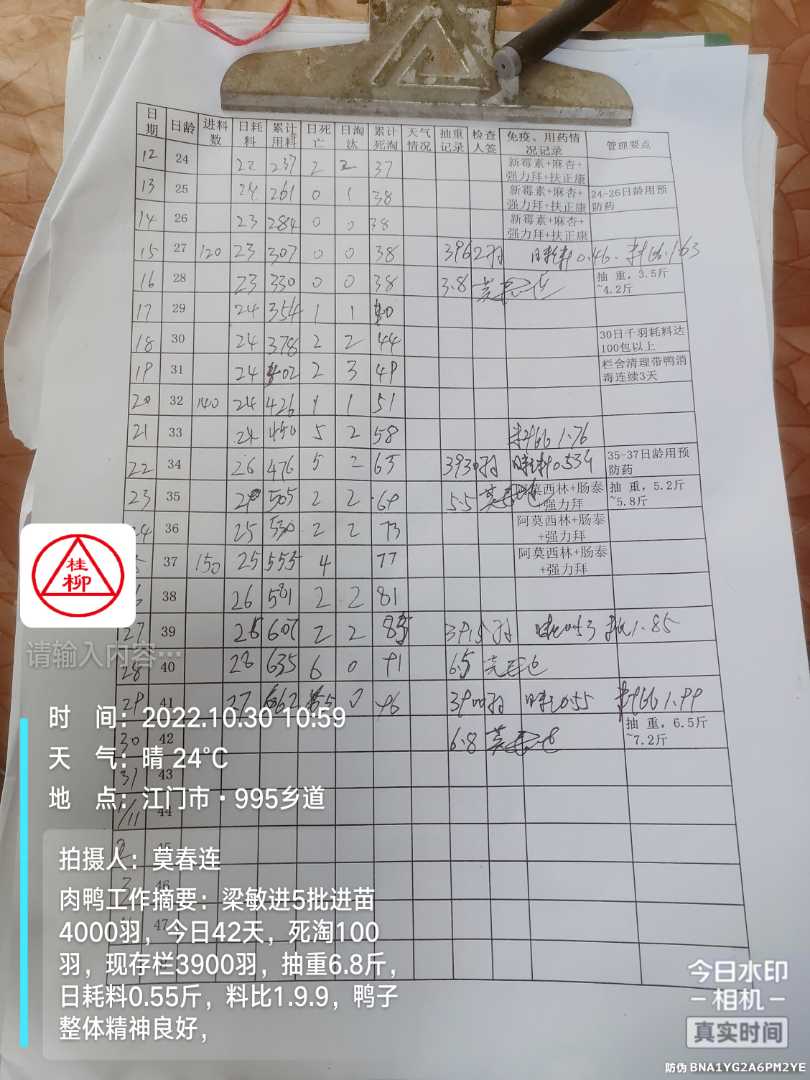 日期 日龄 进料数 日耗料 累计用料 日死亡 日淘汰 累计死淘 天气情况 抽重记录 检查人签 免疫、用药情况记录 管理要点
12 24 22 237 2 2 37 新霉素+麻杏+强力拜+扶正康
13 25 24 261 0 1 38 新霉素+麻杏+强力拜+扶正康 24-26日龄用预防药
14 26 23 284 0 0 38 新霉素+麻杏+强力拜+扶正康
15 27 120 23 307 0 0 38 3962羽 日耗料0.46. 料比1.63
16 28 23 330 0 0 38 3.8 莫春连 抽重，3.5斤~4.2斤
17 29 24 354 1 1 40
18 30 24 378 2 2 44 30日千羽耗料达100包以上
19 31 24 402 2 3 49 栏舍清理带鸭消毒连续3天
20 32 140 24 426 1 1 51
21 33 24 450 5 2 58 料比1.76
22 34 26 476 5 2 65 3930羽 日耗料0.534 35-37日龄用预防药
23 35 505 2 2 69 5.5 莫春连 阿莫西林+肠泰+强力拜 抽重，5.2斤~5.8斤
24 36 25 530 2 2 73 阿莫西林+肠泰+强力拜
5 37 150 25 555 4 77 阿莫西林+肠泰+强力拜
38 26 581 2 2 81
27 39 26 607 2 2 85 3915羽 日耗0.53 料比1.85
28 40 28 635 6 0 91 6.5 莫春连
29 41 27 662 5 0 96 3900羽 日耗0.55 料比1.99
30 42 6.8 莫春连 抽重，6.5斤~7.2斤
31 43
1/11 44
2 45
3 46
47
桂柳
请输入内容···
时 间：2022.10.30 10:59
天 气：晴 24℃
地 点：江门市·995乡道
拍摄人：莫春连
肉鸭工作摘要：梁敏进5批进苗
4000羽，今日42天，死淘100
羽，现存栏3900羽，抽重6.8斤，
日耗料0.55斤，料比1.9.9，鸭子
整体精神良好，
今日水印
-相机-
真实时间
防伪 BNA1YG2A6PM2YE